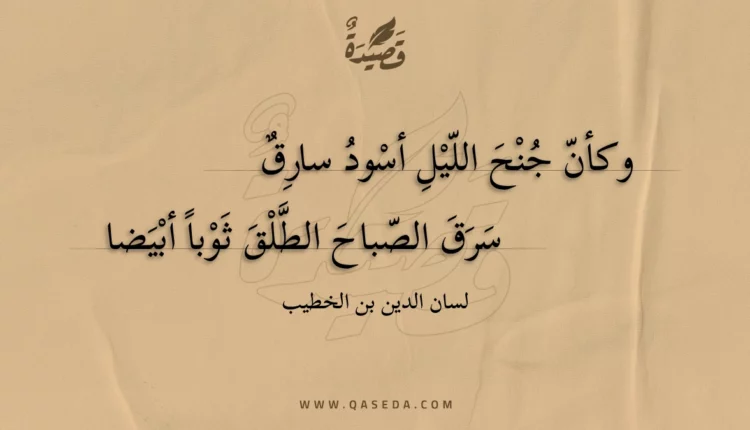 قَصِيْدَةٌ
وكأنّ جُنْحَ اللّيْلِ أسْودُ سارِقٌ
سَرَقَ الصّباحَ الطَّلْقَ ثَوْباً أبْيَضا
لسان الدين بن الخطيب
WWW.QASEDA.COM